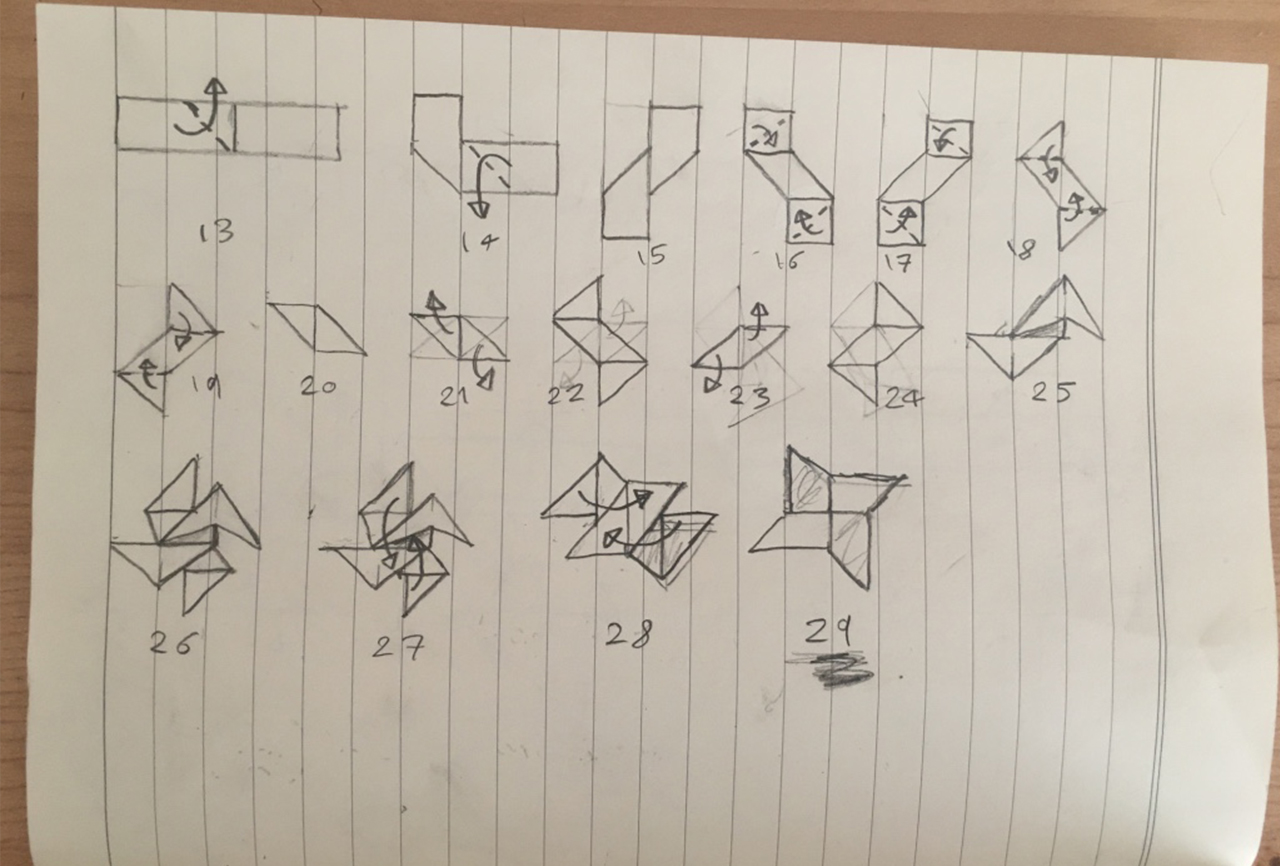 13 14 15 16 17 18
19 20 21 22 23 24 25
26 27 28 29